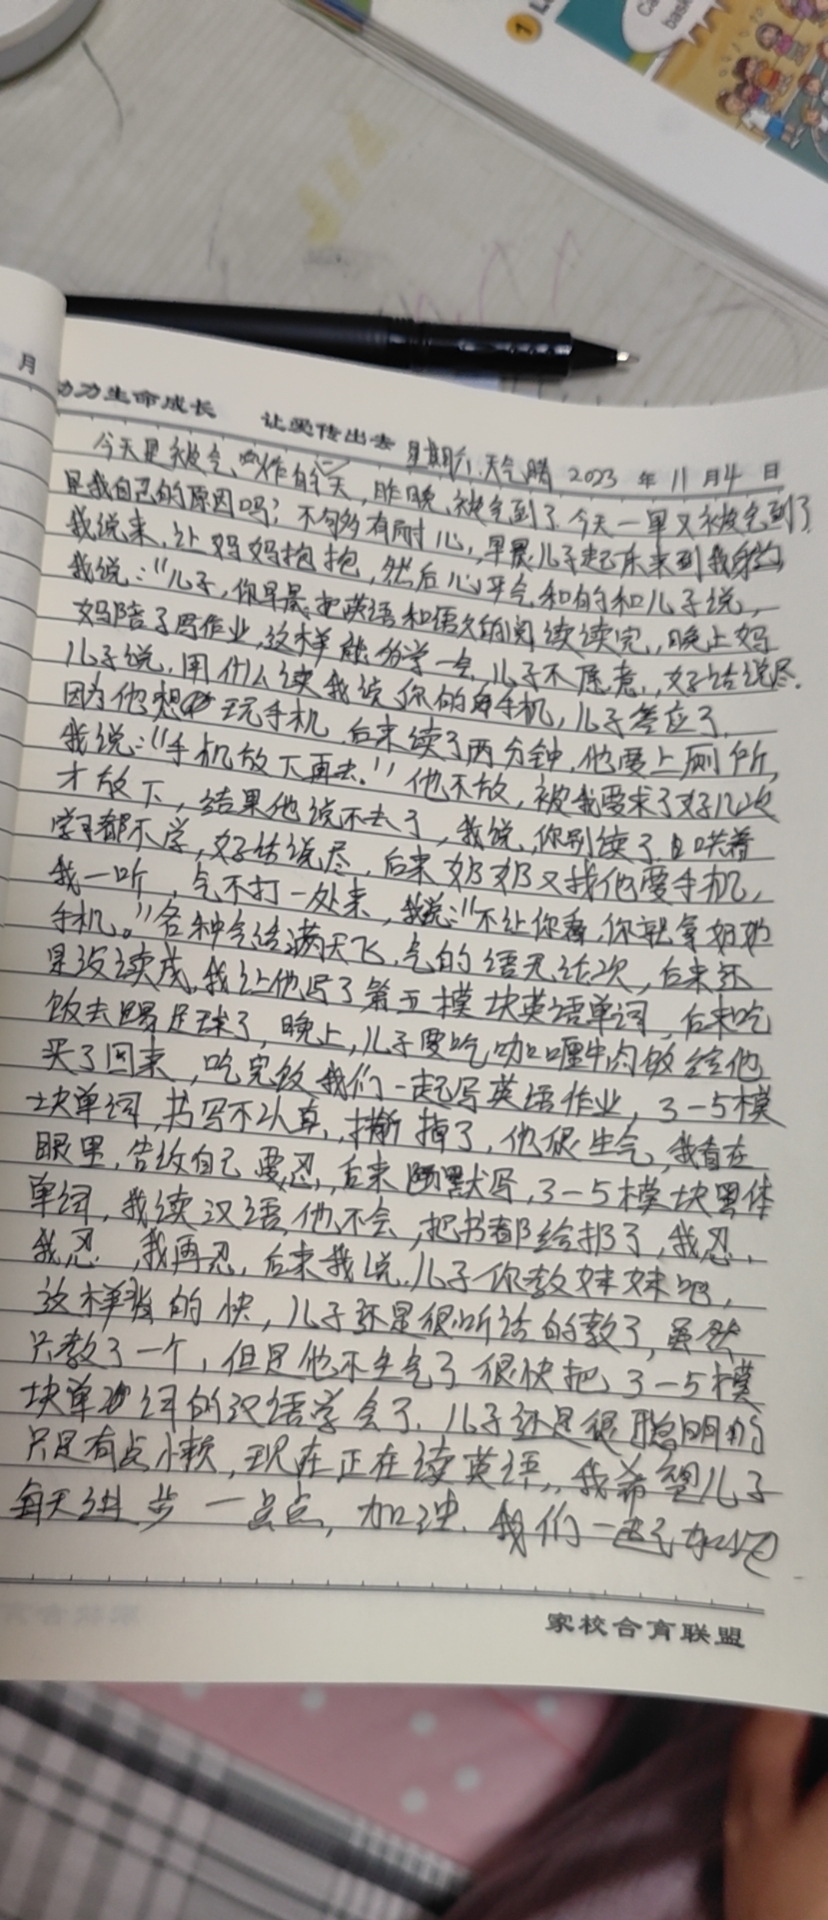 月
助力生命成长 让爱传出去 星期六 天气 晴 2023 年 11 月 4 日
今天是被气炸的一天,昨晚,被气到了今天一早又被气到了
是我自己的原因吗?不够多有耐心,早晨儿子起床来到我身边
我说来,让妈妈抱抱,然后心平气和的和儿子说,
我说:"儿子,你早晨把英语和语文的阅读读完,晚上妈
妈陪了写作业,这样能多学一点,儿子不愿意,好话说尽.
儿子说,用什么读我说你的手机,儿子答应了
因为他想玩手机,后来读了两分钟,他要上厕所,
我说:"手机放下再去."他不放,被我要求了好几次
才放下,结果他说不去了,我说,你别读了哄着
学习都不学,好话说尽,后来奶奶又找他要手机,
我一听,气不打一处来,我说:"不让你看,你就拿奶奶
手机。"各种气话满天飞,气的语无论次,后来还
是没读成,我让他写了第五模块英语单词,后来吃
饭去踢足球了,晚上,儿子要吃咖喱牛肉饭给他
买了回来,吃完饭我们一起写英语作业,3-5模
块单词,书写不认真,撕掉了,他很生气,我看在
眼里,告诉自己要忍,后来默写,3-5模块黑体
单词,我读汉语,他不会,把书都给扔了,我忍,
我忍,我再忍,后来我说,儿子你教妹妹吧,
这样的快,儿子还是很听话的教了,虽然
只教了一个,但是他不生气了很快把,3-5模
块单词的汉语学会了.儿子还是很聪明的
只是有点小懒,现在正在读英语,我希望儿子
每天进步一点点,加油.我们一起加油
家校合育联盟